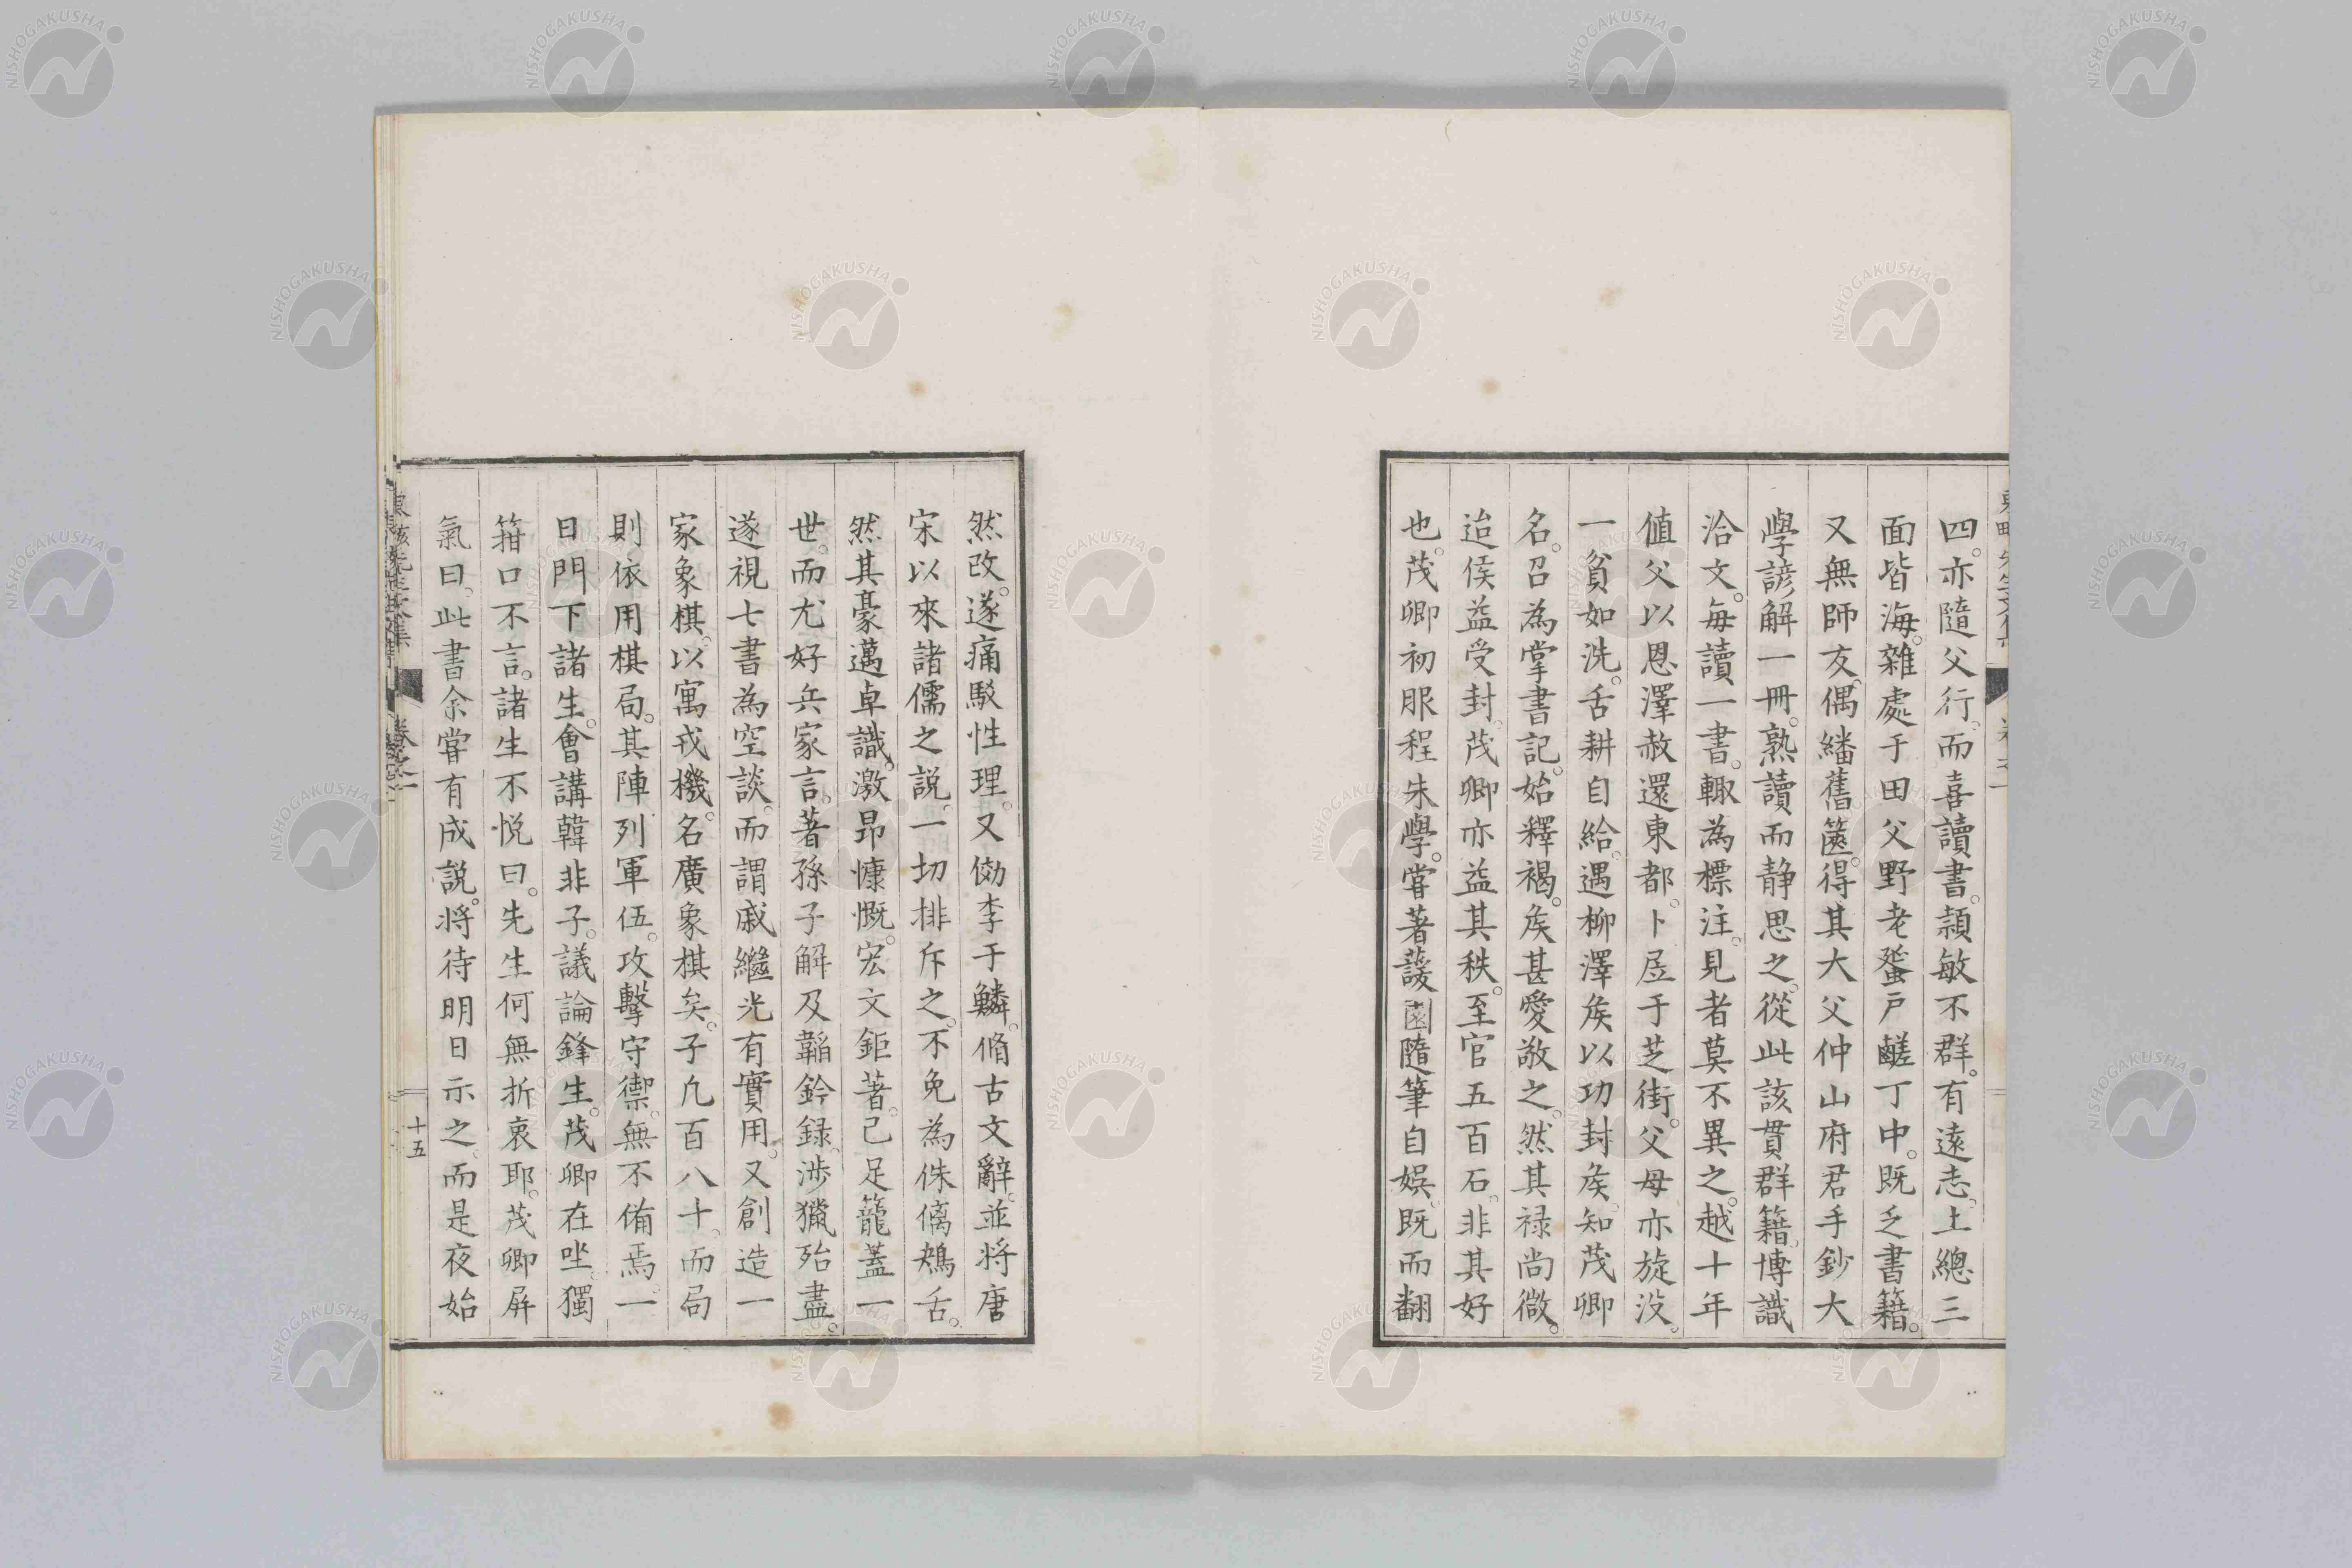 四。亦隨父行。而喜讀書。穎敏不群。有遠志。上總三
面皆海。雜處于田父野老蜑戶鹺丁中。既乏書籍。
又無師友。偶繙舊篋。得其大父仲山府君手鈔大
學諺解一冊。熟讀而靜思之。從此該貫群籍。博識
洽文。每讀一書。輙為標注。見者莫不異之。越十年
值父以恩澤赦還東都。卜居于芝街。父母亦旋沒。
一貧如洗。舌耕自給。遇柳澤矦以功封矦。知茂卿
名。召為掌書記。始釋褐。矦甚愛敬之。然其祿尚微。
迨矦益受封。茂卿亦益其秩。至官五百石。非其好
也。茂卿初服程朱學。嘗著蘐園隨筆自娛。既而翻
然改。遂痛駁性理。又倣李于鱗。脩古文辭。並將唐
宋以來諸儒之說。一切排斥之。不免為侏㒧鴂舌。
然其豪邁卓識。激昂慷慨。宏文鉅著。己足籠蓋一
世。而尤好兵家言。著孫子解及韜鈐錄。涉獵殆盡。
遂視七書為空談。而謂戚繼光有實用。又創造一
家象棋。以寓戎機。名廣象棋矣。子凢百八十。而局
則依用棋局。其陣列軍伍。攻擊守禦。無不俻焉。一
日門下諸生。會講韓非子。議論鋒生。茂卿在坐。獨
箝口不言。諸生不悅曰。先生何無折衷耶。茂卿屏
氣曰。此書余嘗有成說。將待明日示之。而是夜始
十五